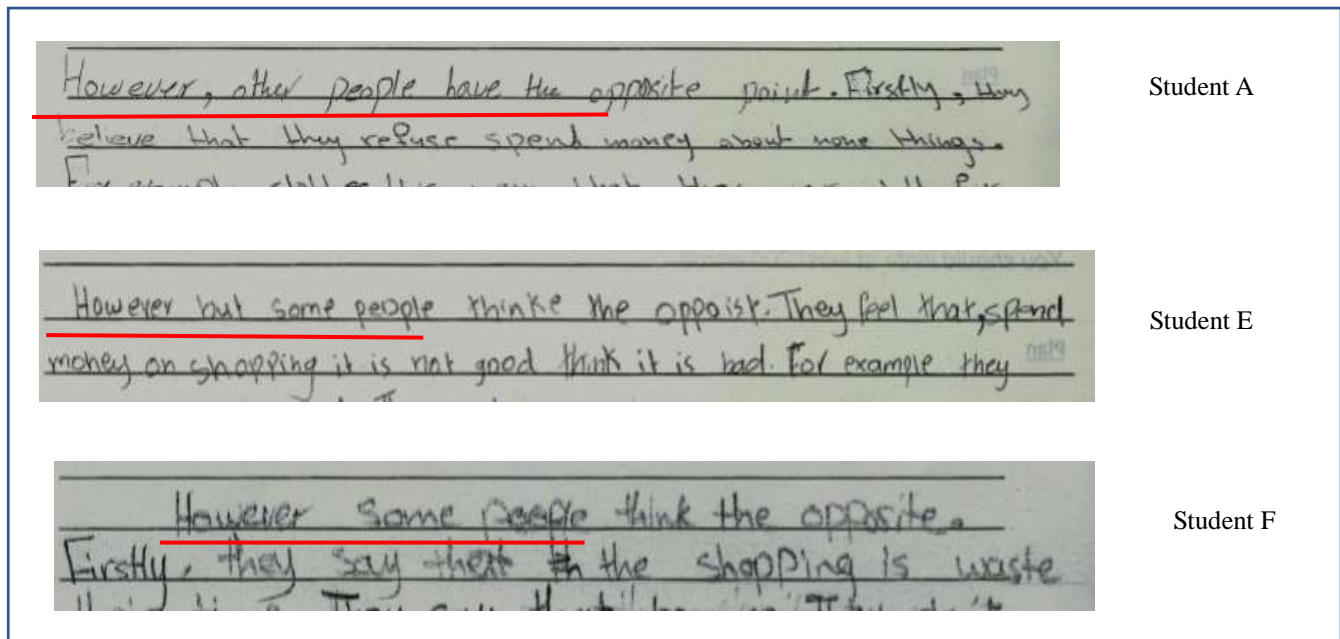 However, other people have the opposite point. Firstly, they
believe that they refuse spend money about none things.
Student A
However but some people thinke the oppoist. They feel that, spend
money on shopping it is not good think it is bad. For example they
Student E
However some people think the opposite.
Firstly, they say that the shopping is waste
Student F